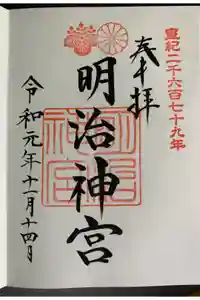 皇紀二千六百七十九年
奉拝
明治神宮
令和元年十一月十四日